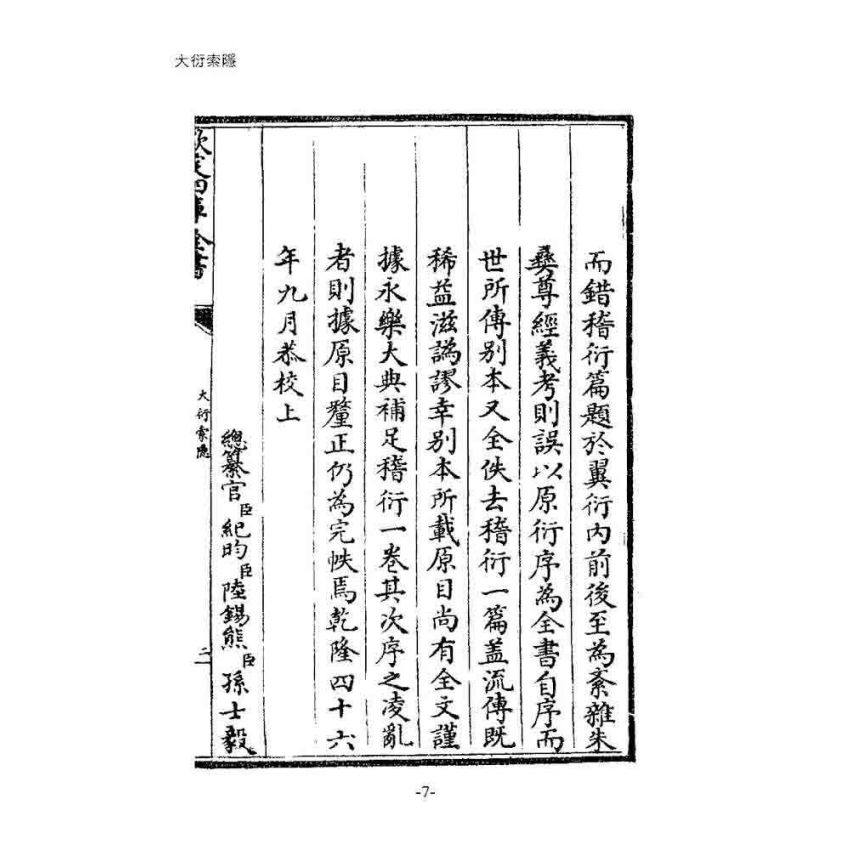 大衍索隱
而錯稽衍篇題於翼衍內前後至為紊雜朱
彝尊經義考則誤以原衍序為全書自序而
世所傳別本又全佚去稽衍一篇蓋流傳既
稀益滋譌謬幸別本所載原目尚有全文謹
據永樂大典補足稽衍一卷其次序之凌亂
者則據原目釐正仍為完帙焉乾隆四十六
年九月恭校上
總纂官臣紀昀臣陸錫熊臣孫士毅
欽定四庫全書
大衍索隱
二
-7-